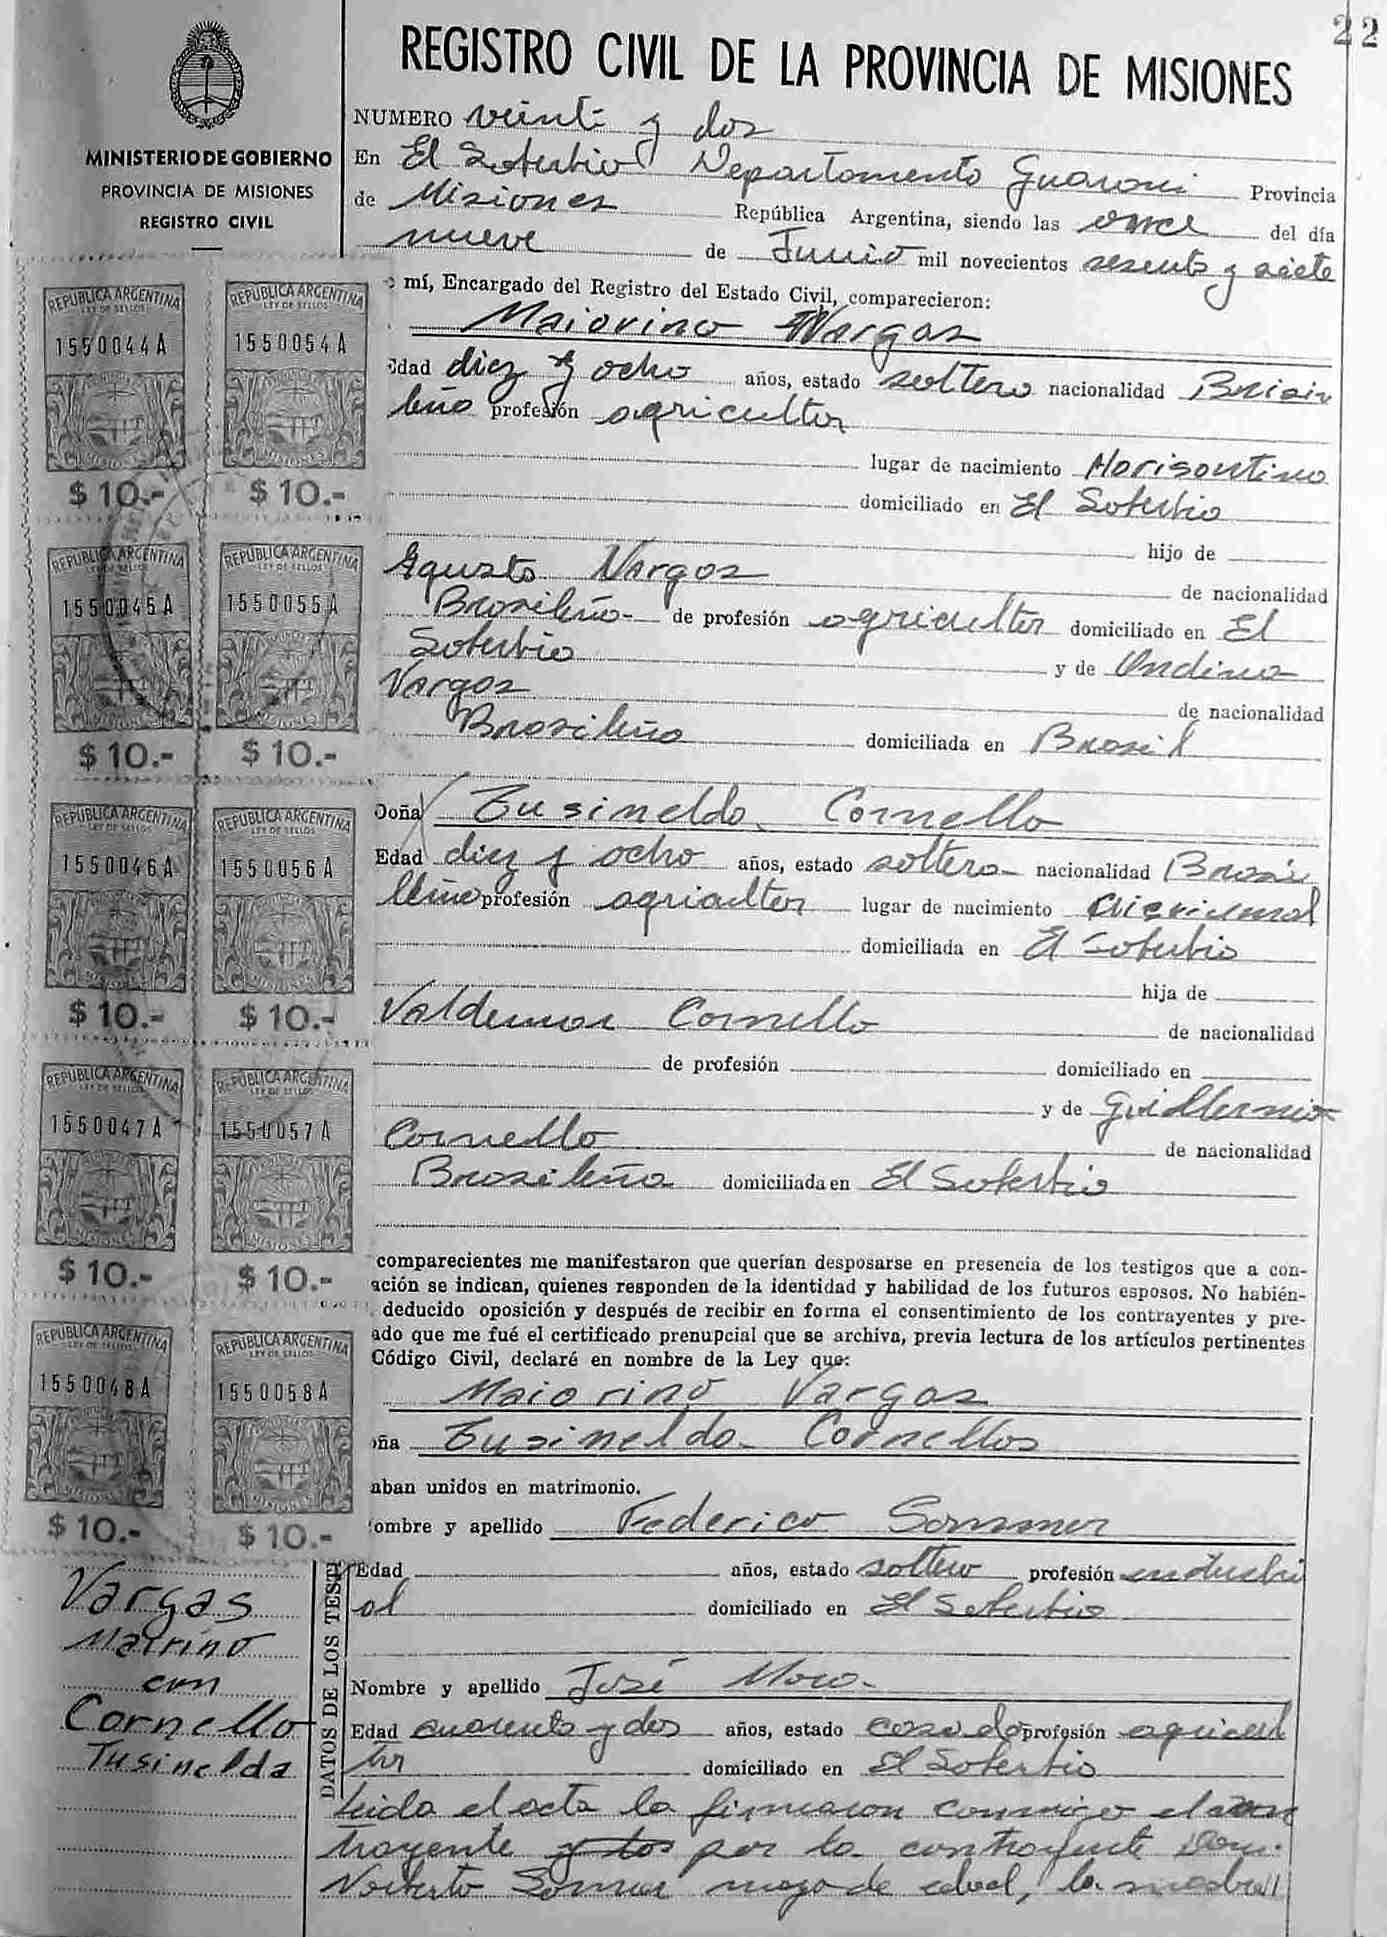 22
REGISTRO CIVIL DE LA PROVINCIA DE MISIONES
MINISTERIO DE GOBIERNO
PROVINCIA DE MISIONES
REGISTRO CIVIL
NUMERO veinte y dos
En El Soberbio Departamento Guarani Provincia
de Misiones República Argentina, siendo las once del día
nueve de Junio mil novecientos sesenta y siete
mí, Encargado del Registro del Estado Civil, comparecieron:
Maiorino Vargas
Edad diez y ocho años, estado soltero nacionalidad Brasi
leño profesión agricultor
lugar de nacimiento Horisontino
domiciliado en El Soberbio
hijo de
Agusto Vargas de nacionalidad
Brasileño de profesión agricultor domiciliado en El
Soberbio y de Ondina
Vargas de nacionalidad
Brasileña domiciliada en Brasil
Doña Tusinelda Cornello
Edad diez y ocho años, estado soltera nacionalidad Brasi
leña profesión agricultor lugar de nacimiento
domiciliada en El Soberbio
hija de
Valdemar Cornello de nacionalidad
de profesión domiciliado en
y de Guillermina
Cornello de nacionalidad
Brasileña domiciliada en El Soberbio
comparecientes me manifestaron que querían desposarse en presencia de los testigos que a con-
ación se indican, quienes responden de la identidad y habilidad de los futuros esposos. No habién-
deducido oposición y después de recibir en forma el consentimiento de los contrayentes y pre-
ado que me fué el certificado prenupcial que se archiva, previa lectura de los artículos pertinentes
Código Civil, declaré en nombre de la Ley que:
Maiorino Vargas
oña Tusinelda Cornellos
aban unidos en matrimonio.
ombre y apellido Federico Sommer
Edad años, estado soltero profesión industri
al domiciliado en El Soberbio
Nombre y apellido José Moro
Edad cuarenta y dos años, estado casado profesión agricul
tor domiciliado en El Soberbio
leida el acta la firmaron conmigo el con
trayente y los por la contrayente Don
Norberto Sommer mayor de edad, la
DATOS DE LOS TESTI
Vargas
Mairino
con
Cornello
Tusinelda
REPUBLICA ARGENTINA
LEY DE SELLOS
1550044A
MISIONES
$ 10.-
REPUBLICA ARGENTINA
LEY DE SELLOS
1550054A
MISIONES
$ 10.-
REPUBLICA ARGENTINA
LEY DE SELLOS
1550045A
MISIONES
$ 10.-
REPUBLICA ARGENTINA
LEY DE SELLOS
1550055A
MISIONES
$ 10.-
REPUBLICA ARGENTINA
LEY DE SELLOS
1550046A
MISIONES
$ 10.-
REPUBLICA ARGENTINA
LEY DE SELLOS
1550056A
MISIONES
$ 10.-
REPUBLICA ARGENTINA
LEY DE SELLOS
1550047A
MISIONES
$ 10.-
REPUBLICA ARGENTINA
LEY DE SELLOS
1550057A
MISIONES
$ 10.-
REPUBLICA ARGENTINA
LEY DE SELLOS
1550048A
MISIONES
$ 10.-
REPUBLICA ARGENTINA
LEY DE SELLOS
1550058A
MISIONES
$ 10.-